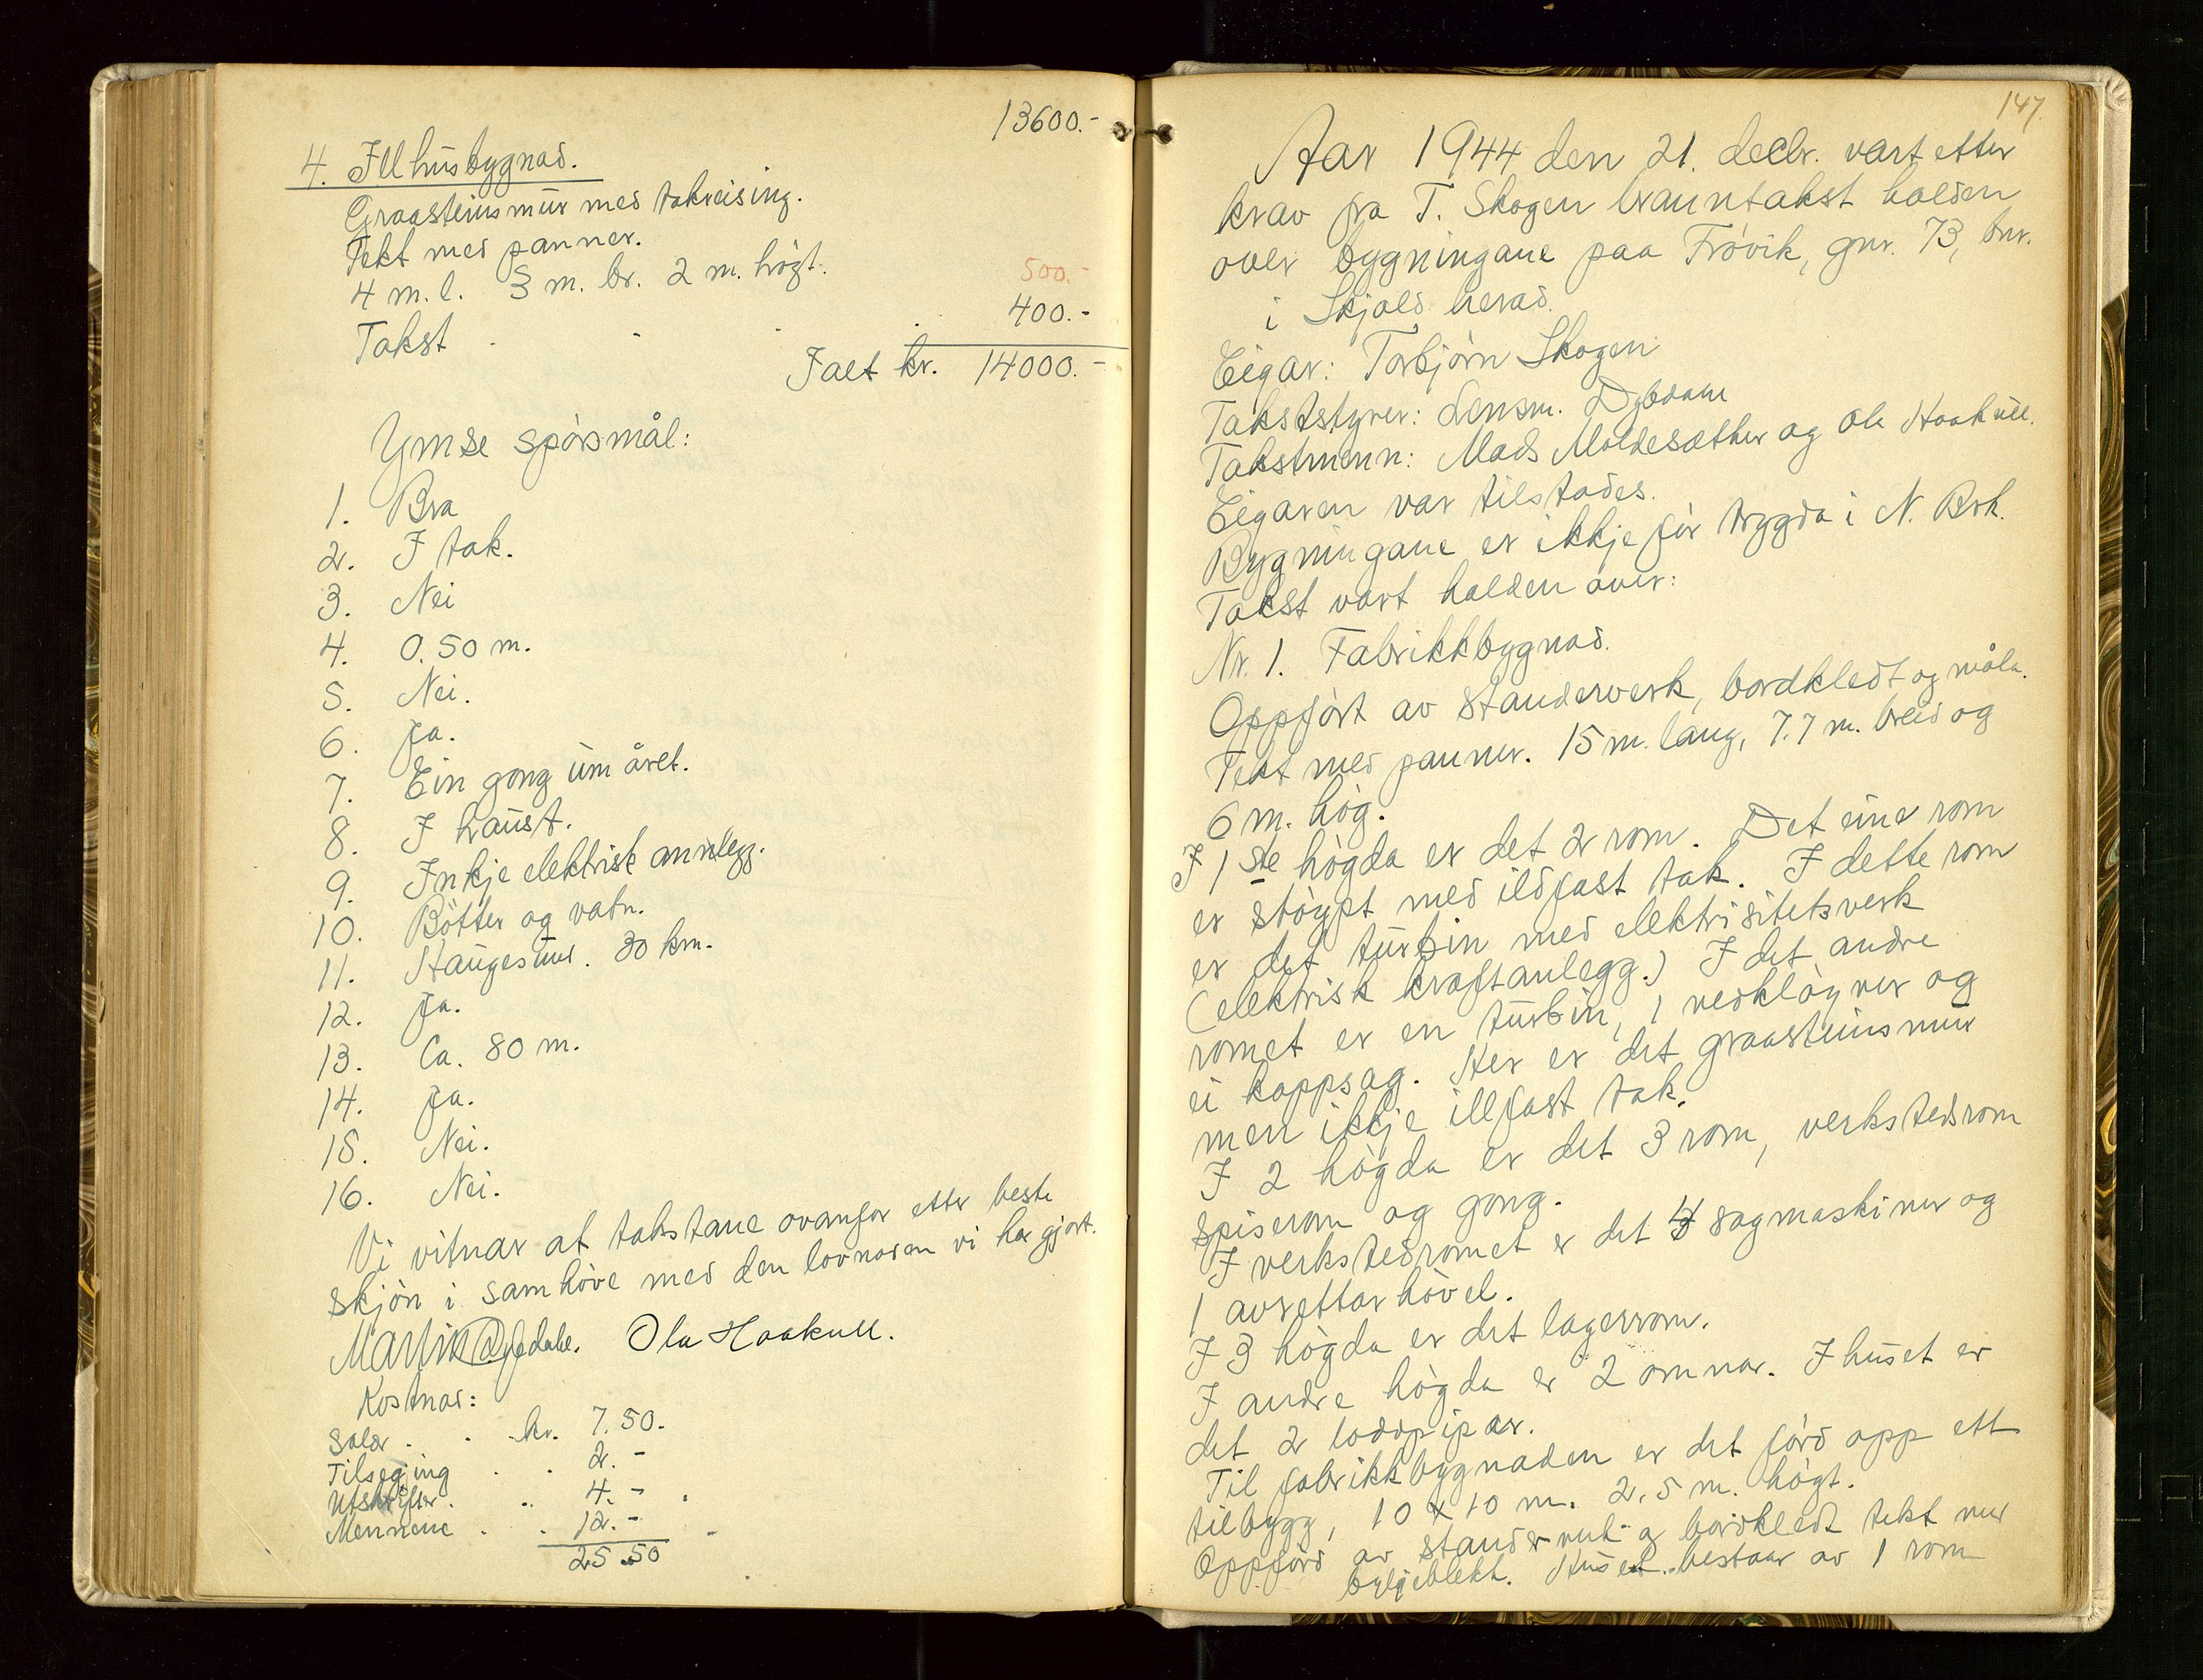 13600.-
4. Illhusbygnad.
Graasteinsmur med takreising.
Tekt med panner.
4 m. l. 3 m. br. 2 m. högt.
500.-
Takst . . . . 400.-
Ialt kr. 14000.-
Ymse spörsmål:
1. Bra
2. I tak.
3. Nei
4. 0.50 m.
5. Nei.
6. Ja.
7. Ein gong um året.
8. I haust.
9. Inkje elektrisk annlegg.
10. Bötter og vatn.
11. Haugesund. 30 km.
12. Ja.
13. Ca. 80 m.
14. Ja.
15. Nei.
16. Nei.
Vi vitnar at takstane ovanfor etter beste
skjön i samhöve med den lovnaden vi har gjort.
Martin Ola Haakull.
Kostnad:
Salær . . kr. 7.50.
Tilsegjing . . 2.-
Utskrifter . .. 4.- .
Mennene . . 12.- -
25.50
147.
Aar 1944 den 21. decbr. vart etter
krav fra T. Skogen branntakst halden
over bygningane paa Frövik, gnr. 73, bnr.
i Skjold herad.
Eigar: Torbjörn Skogen
Takststyrer: Lensm. Dybdahl
Takstmenn: Mads Moldesæther og Ola Haakull.
Eigaren var tilstades.
Bygningane er ikkje för trygda i N. Brk.
Takst vart halden over:
Nr. 1. Fabrikkbygnad.
Oppfört av standerverk, bordkledt og måla.
Tekt med panner. 15 m. lang, 7.7 m. breid og
6 m. hög.
I 1ste högda er det 2 rom. Det eine rom
er stöypt med ildfast tak. I dette rom
er det turbin med elektrisitetsverk
(elektrisk kraftanlegg.) I det andre
romet er en turbin, 1 vedklöyver og
ei kappsag. Her er det graasteinsmur
men ikkje illfast tak.
I 2 högda er det 3 rom, verkstedsrom
spiserom og gong.
I verkstedromet er det 4 sagmaskiner og
1 avrettarhövel.
I 3 högda er det lagerrom.
I andre högda er 2 omnar. I huset er
det 2 loddpipar.
Til fabrikkbygnaden er det förd opp ett
tilbygg, 10 x 10 m. 2.5 m. högt.
Oppförd av standerverk og bordkledt tekt med
bylgjeblekk. Huset bestaar av 1 rom